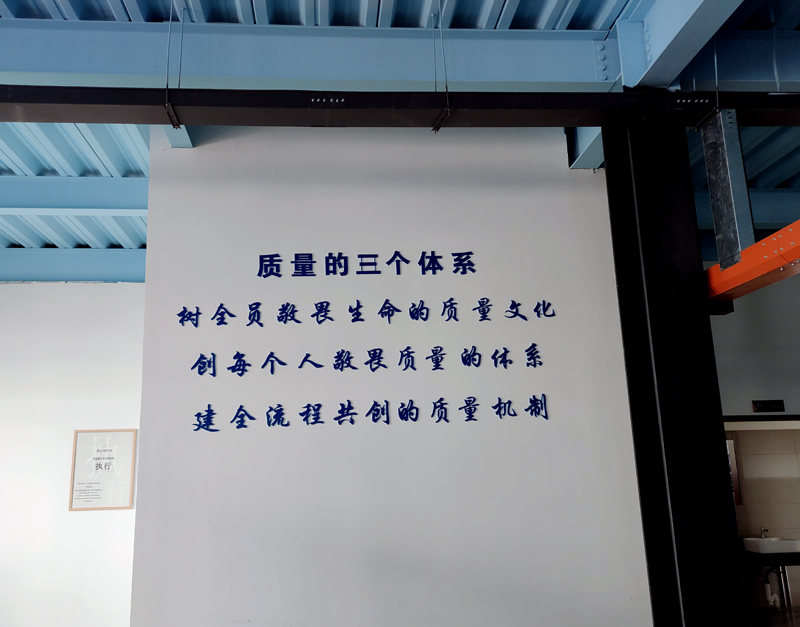 质量的三个体系
树全员敬畏生命的质量文化
创每个人敬畏质量的体系
建全流程共创的质量机制
执行